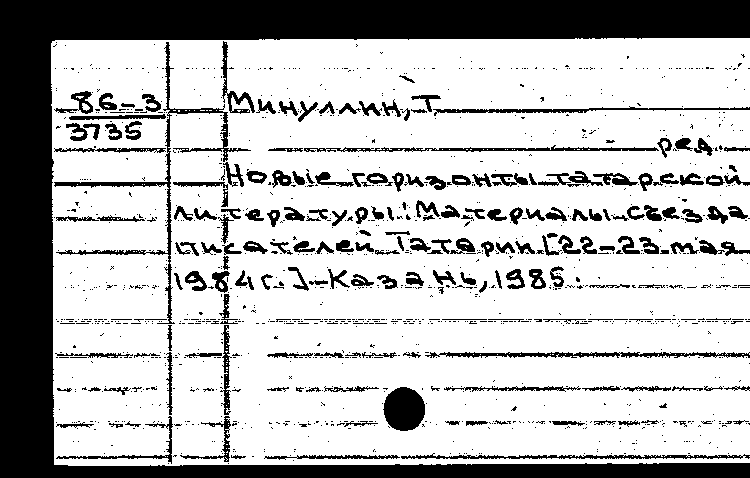 86-3
3735
Минуллин, Т
ред.
Новые горизонты татарской
литературы: Материалы съезда
писателей Татарии [22-23 мая
1984 г.]-Казань, 1985.